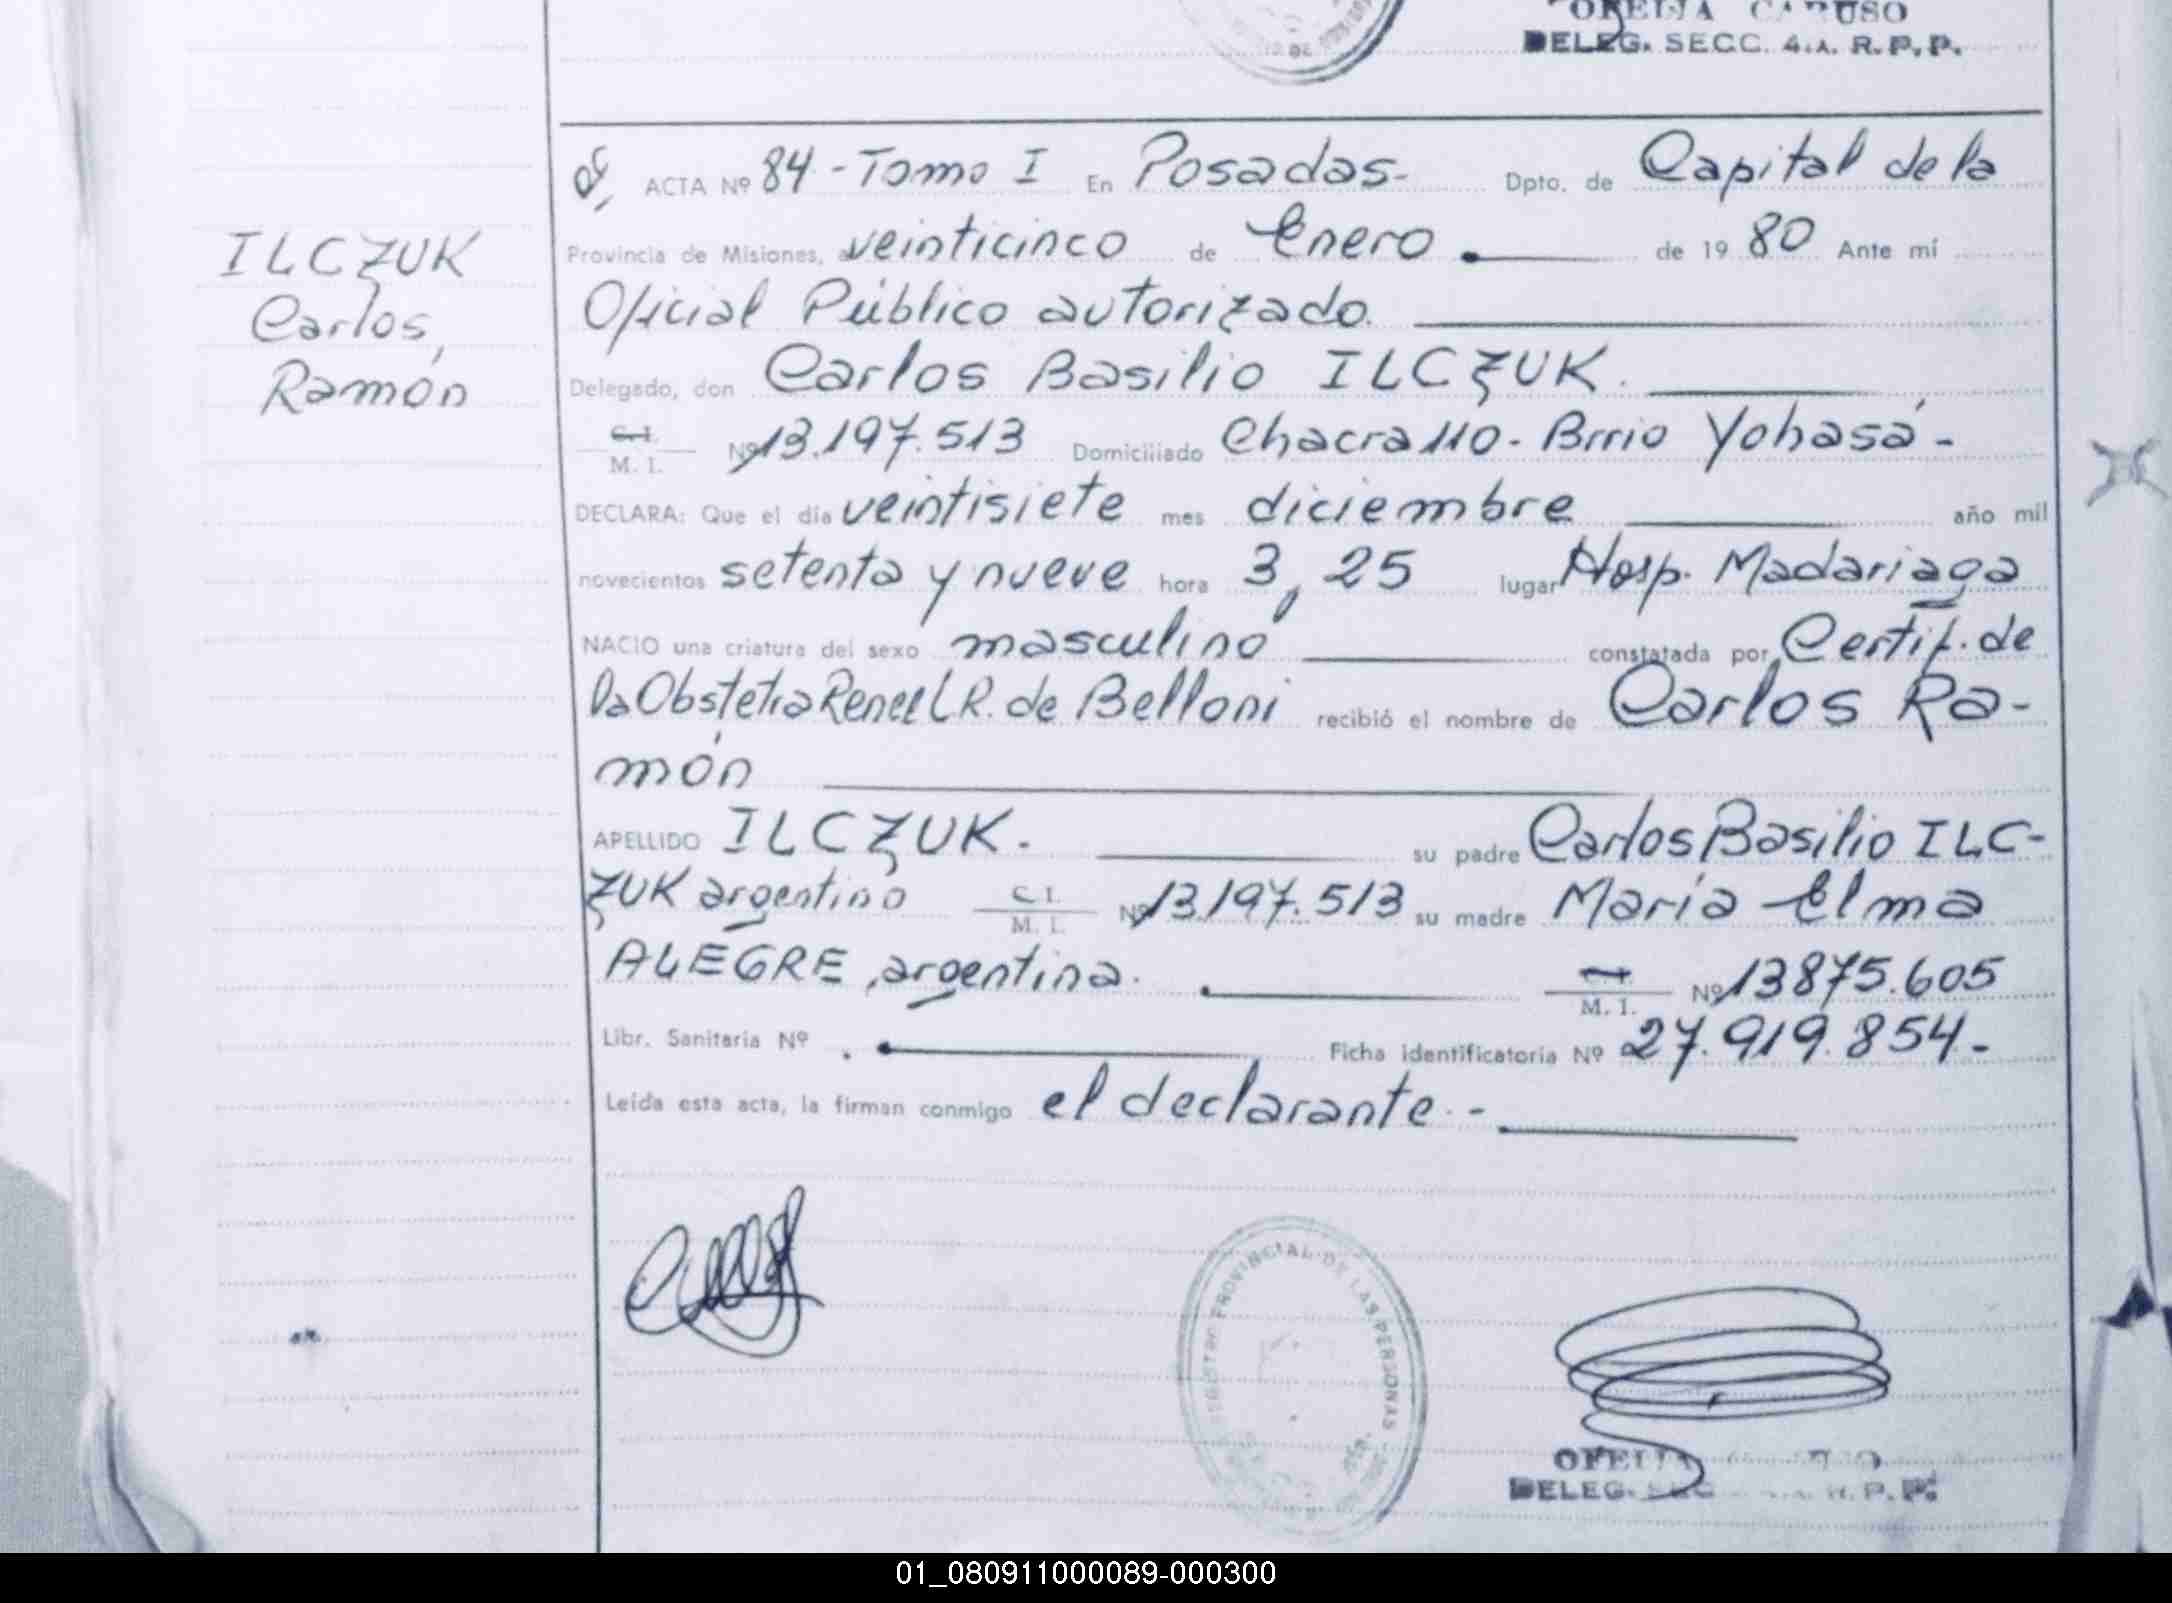 OFELIA CARUSO
DELEG. SECC. 4.A. R.P.P.
ILCZUK
Carlos,
Ramón
ACTA Nº 84 - Tomo I En Posadas- Dpto. de Capital de la
Provincia de Misiones, a veinticinco de Enero de 19 80 Ante mí
Oficial Público autorizado.
Delegado, don Carlos Basilio ILCZUK.
C. I.
M. I. Nº 13.197.513 Domiciliado Chacra 110 - Brrio Yohasá -
DECLARA: Que el día veintisiete mes diciembre año mil
novecientos setenta y nueve hora 3,25 lugar Hosp. Madariaga
NACIO una criatura del sexo masculino constatada por Certif. de
la Obstetra Renee L R. de Belloni recibió el nombre de Carlos Ra-
món
APELLIDO ILCZUK. su padre Carlos Basilio ILC-
ZUK argentino C. I.
M. I. Nº 13.197.513 su madre María Elma
ALEGRE, argentina. C. I.
M. I. Nº 13875.605
Libr. Sanitaria Nº Ficha identificatoria Nº 27.919.854.-
Leída esta acta, la firman conmigo el declarante.-
PROVINCIAL DE LAS PERSONAS
DELEG. R.P.P.
01_080911000089-000300